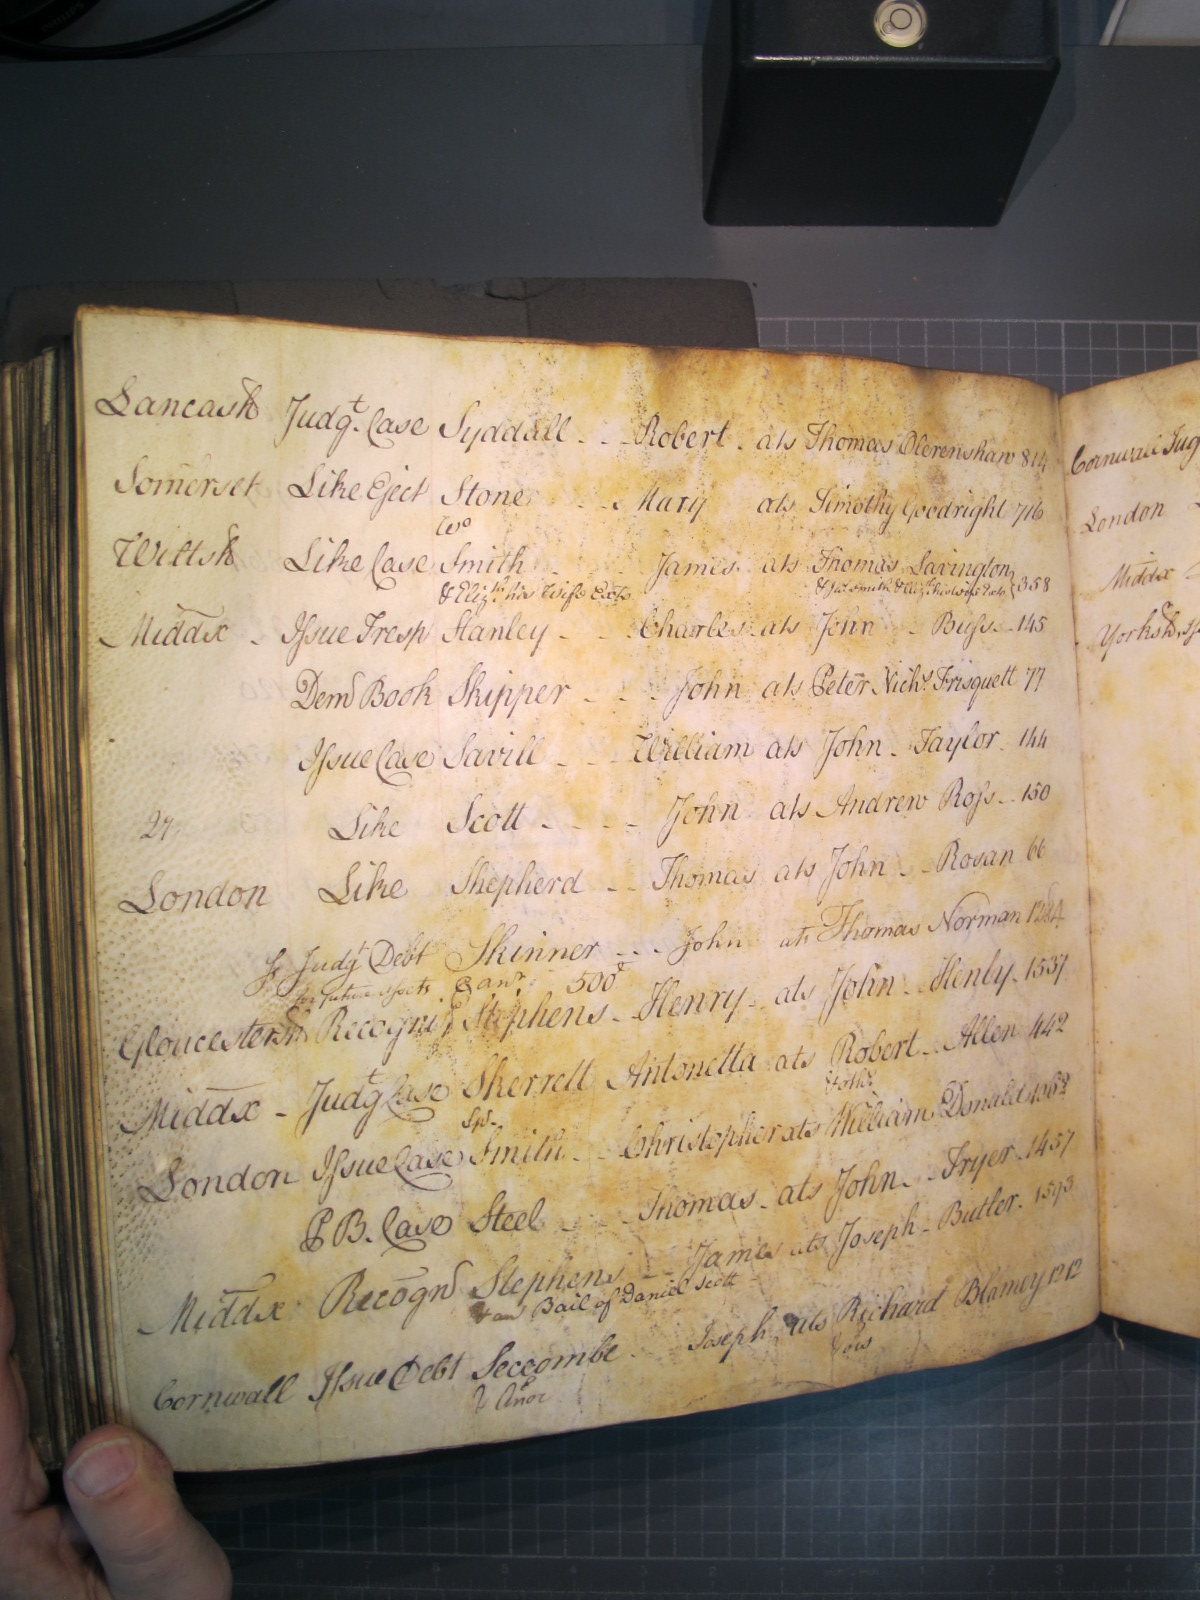 Lancash Judgt. Case Syddall - - Robert - ats Thomas Olerenshaw 814
Somerset Like Eject Stone - - Mary ats Timothy Goodright 716
Wo
Wiltsh Like Case Smith James ats Thomas Savington
& Elizth his Wife Exts & Jas Smith & Elizth his Wife Exts 358
Middx - Issue Tresp Stanley - - Charles - ats John - Buss - 145
Demd Book Skipper - - - John ats Peter Nichs Frisquett 77
Issue Case Savill - - William ats John - Taylor - 144
27 Like Scott - - - - John ats Andrew Ross - - 150
London Like Shepherd - - Thomas ats John - Rosan 66
Judgt Debt Skinner - - - John ats Thomas Norman
for future 500
Gloucestersh Recogn Stephens - Henry - ats John - Henly - 1537
Middx - Judgt Case Skerrett Antonetta ats Robert - Allen 442
Spr. & othr
London Issue Case Smith - - Christopher ats William Donald
P B. Case Steel - - Thomas - ats John - Fryer - 1457
Middx Recognd Stephens - - James ats Joseph - Butler - 1593
Bail of Daniel Scott
Cornwall Issue Debt Seccombe - Joseph ats Richard Blamey 1212
& Anor & ors
Cornwall Jug
London
Middx
Yorksh